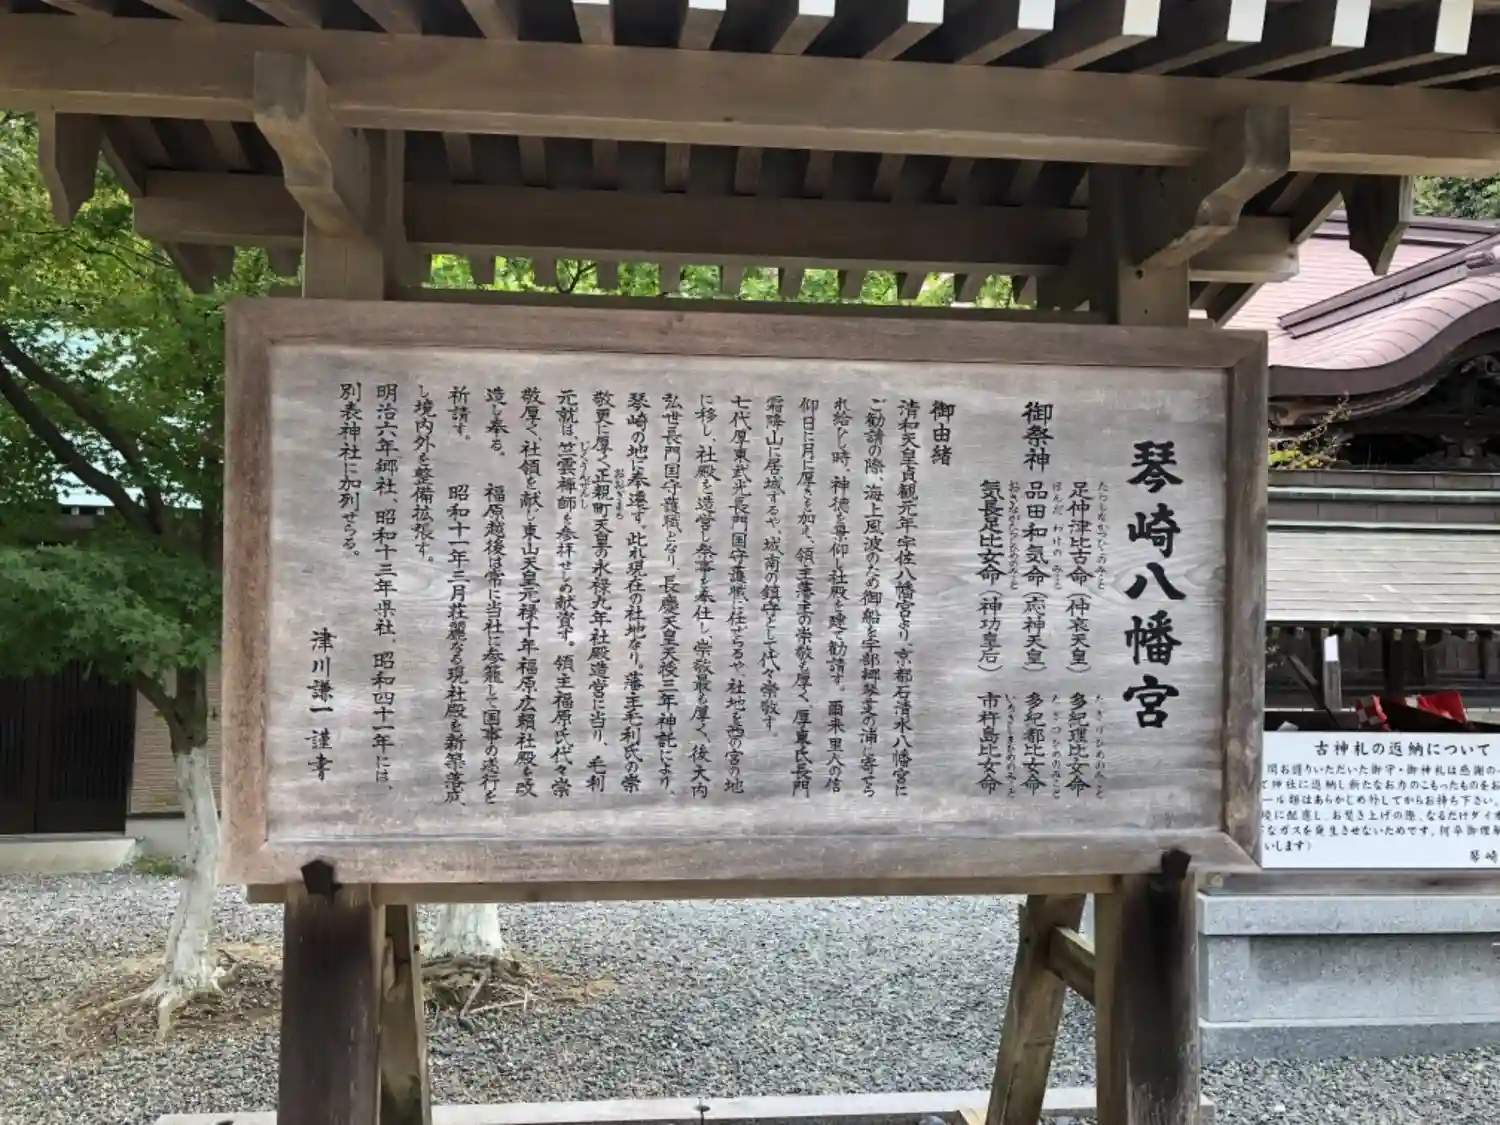 琴崎八幡宮
御祭神
足仲津比古命(仲哀天皇)　多紀理比女命
品田和気命(応神天皇)　多紀都比女命
気長足比女命(神功皇后)　市杵島比女命
御由緒
清和天皇貞観元年宇佐八幡宮より、京都石清水八幡宮に
ご勧請の際、海上風波のため御船を宇部郷琴芝の浦に寄せら
れ給ひし時、神徳を尊仰し社殿を建て勧請す。爾来里人の信
仰日に月に厚きを加え、領主藩主の崇敬も厚く、厚東氏長門
霜降山に居城するや、城南の鎮守として代々崇敬す。
七代厚東武光長門国守護職に任ぜらるや、社地を西の宮の地
に移し、社殿を造営し祭事を奉仕し、崇敬最も厚く、後大内
弘世長門国守護職となり、長慶天皇天授三年神託により、
琴崎の地に奉遷す。此れ現在の社地なり。藩主毛利氏の崇
敬更に厚く、正親町天皇の永禄九年社殿造営に当り、毛利
元就は、竺雲禅師を参拝せしめ献資す。領主福原氏代々崇
敬厚く、社領を献じ東山天皇元禄十年福原広頼社殿を改
造し奉る。　福原越後は常に当社に参籠して国事の遂行を
祈請す。　昭和十一年三月荘麗なる現社殿を新築落成、
し境内外を整備拡張す。
明治六年郷社、昭和十三年県社、昭和四十一年には、
別表神社に加列せらる。
津川謙一謹書
古神札の返納について